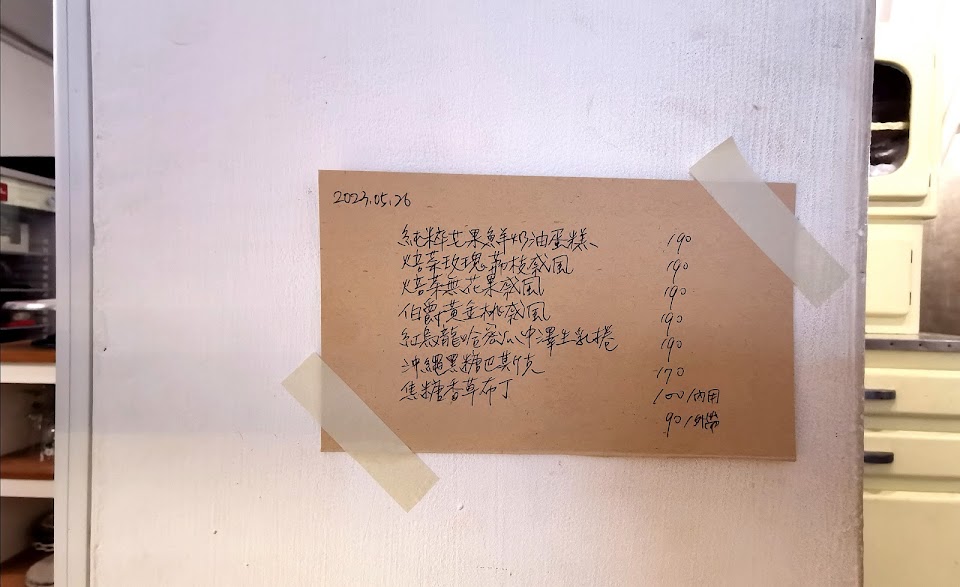 2023.05.26
純粹芒果鮮奶油蛋糕、 190
焙茶玫瑰荔枝戚風 190
焙茶無花果戚風 190
伯爵黃金桃戚風 190
紅烏龍哈密瓜中澤生乳捲 190
沖繩黑糖巴斯克 170
焦糖香草布丁 100/內用
90/外帶